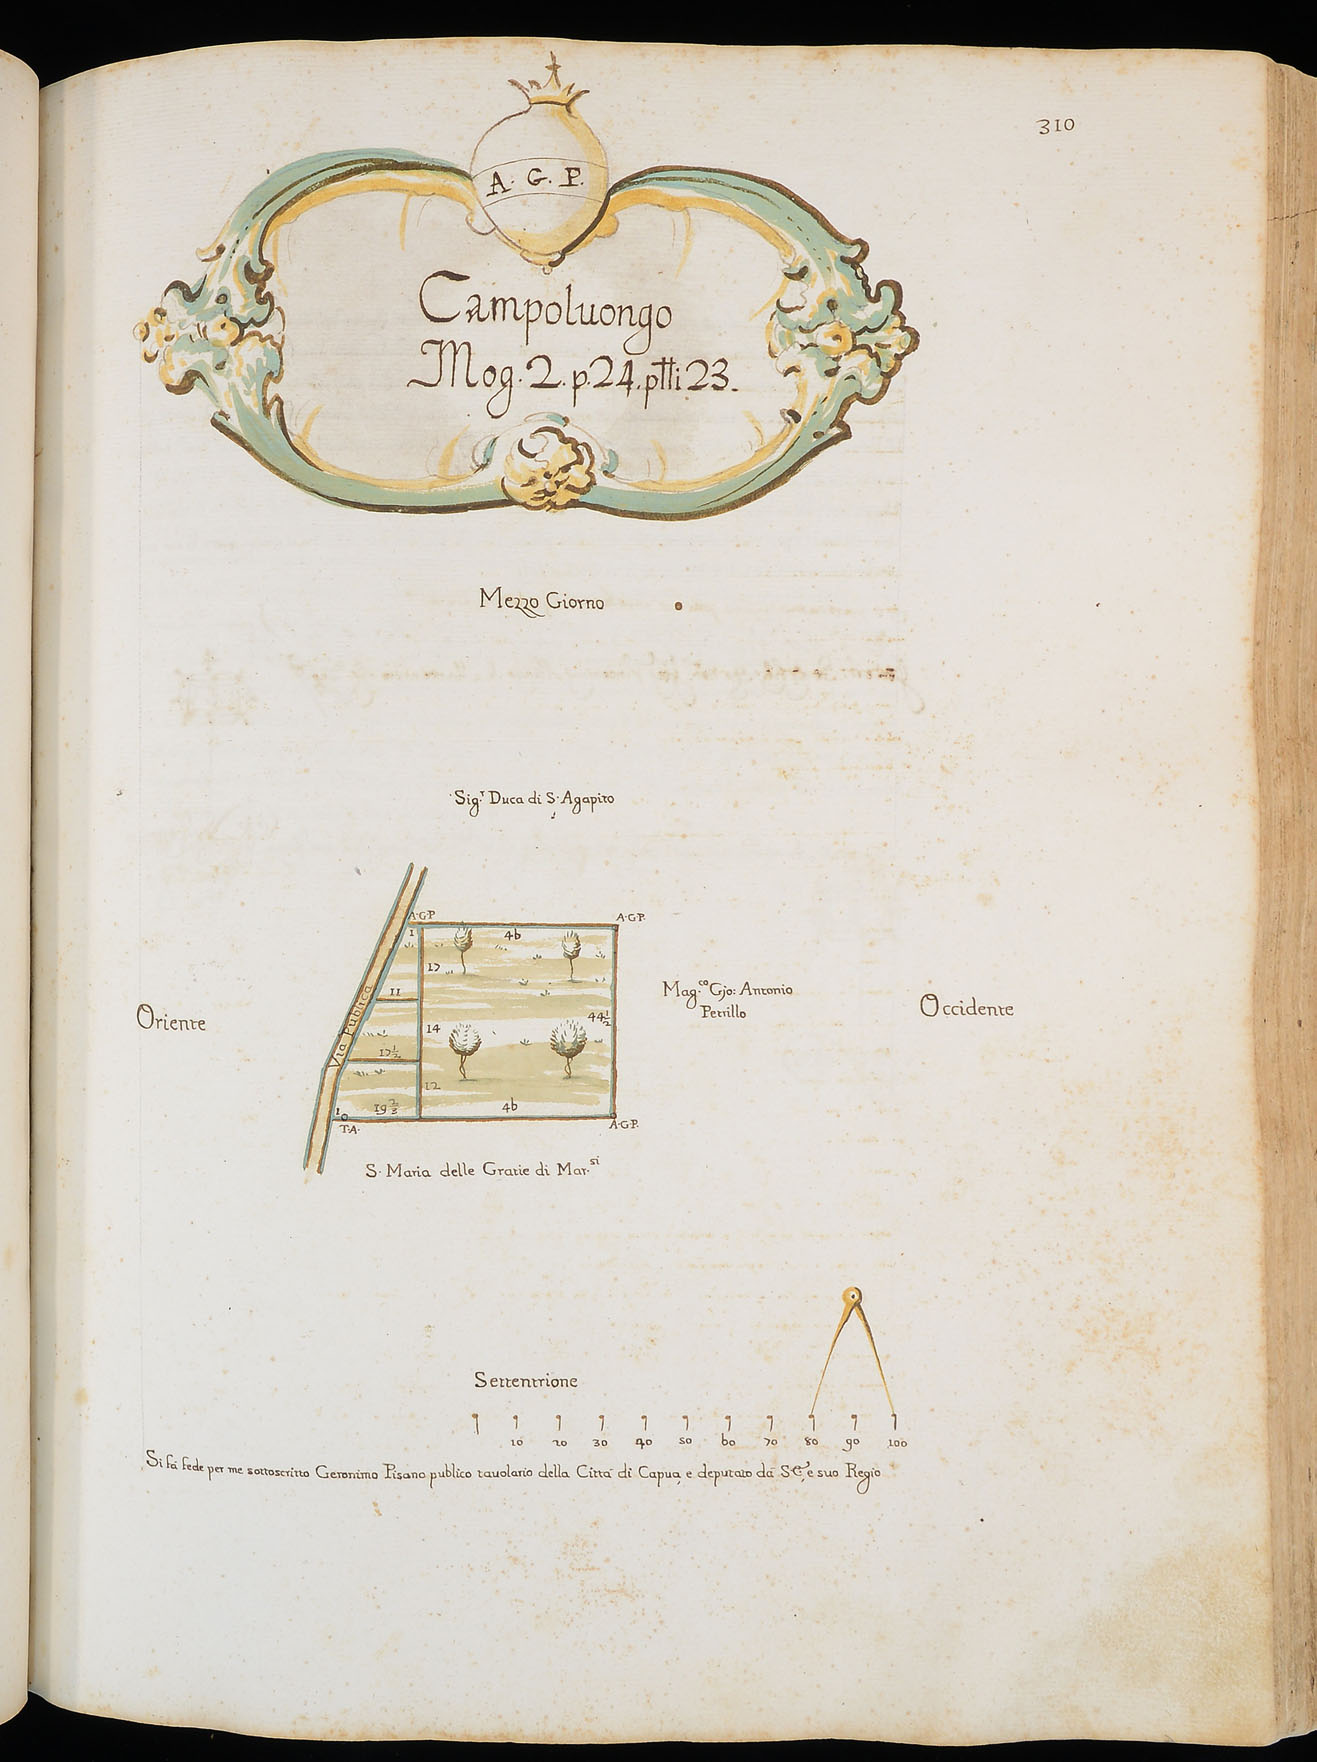 310
A. G. P.
Campoluongo
Mog. 2. p. 24. ptti 23.
Mezzo Giorno
Sig.r Duca di S. Agapito
A·G·P
A·G·P.
1
46
17
11
Via Publica
14
44 1/2
17 1/2
12
19 2/3
46
1
T·A·
A·G·P.
Oriente
Mag.co Gio: Antonio
Petrillo
Occidente
S. Maria delle Gratie di Mar.si
Settentrione
10 20 30 40 50 60 70 80 90 100
Si fà fede per me sottoscritto Geronimo Pisano publico tavolario della Città di Capua, e deputato da S. C. e suo Regio